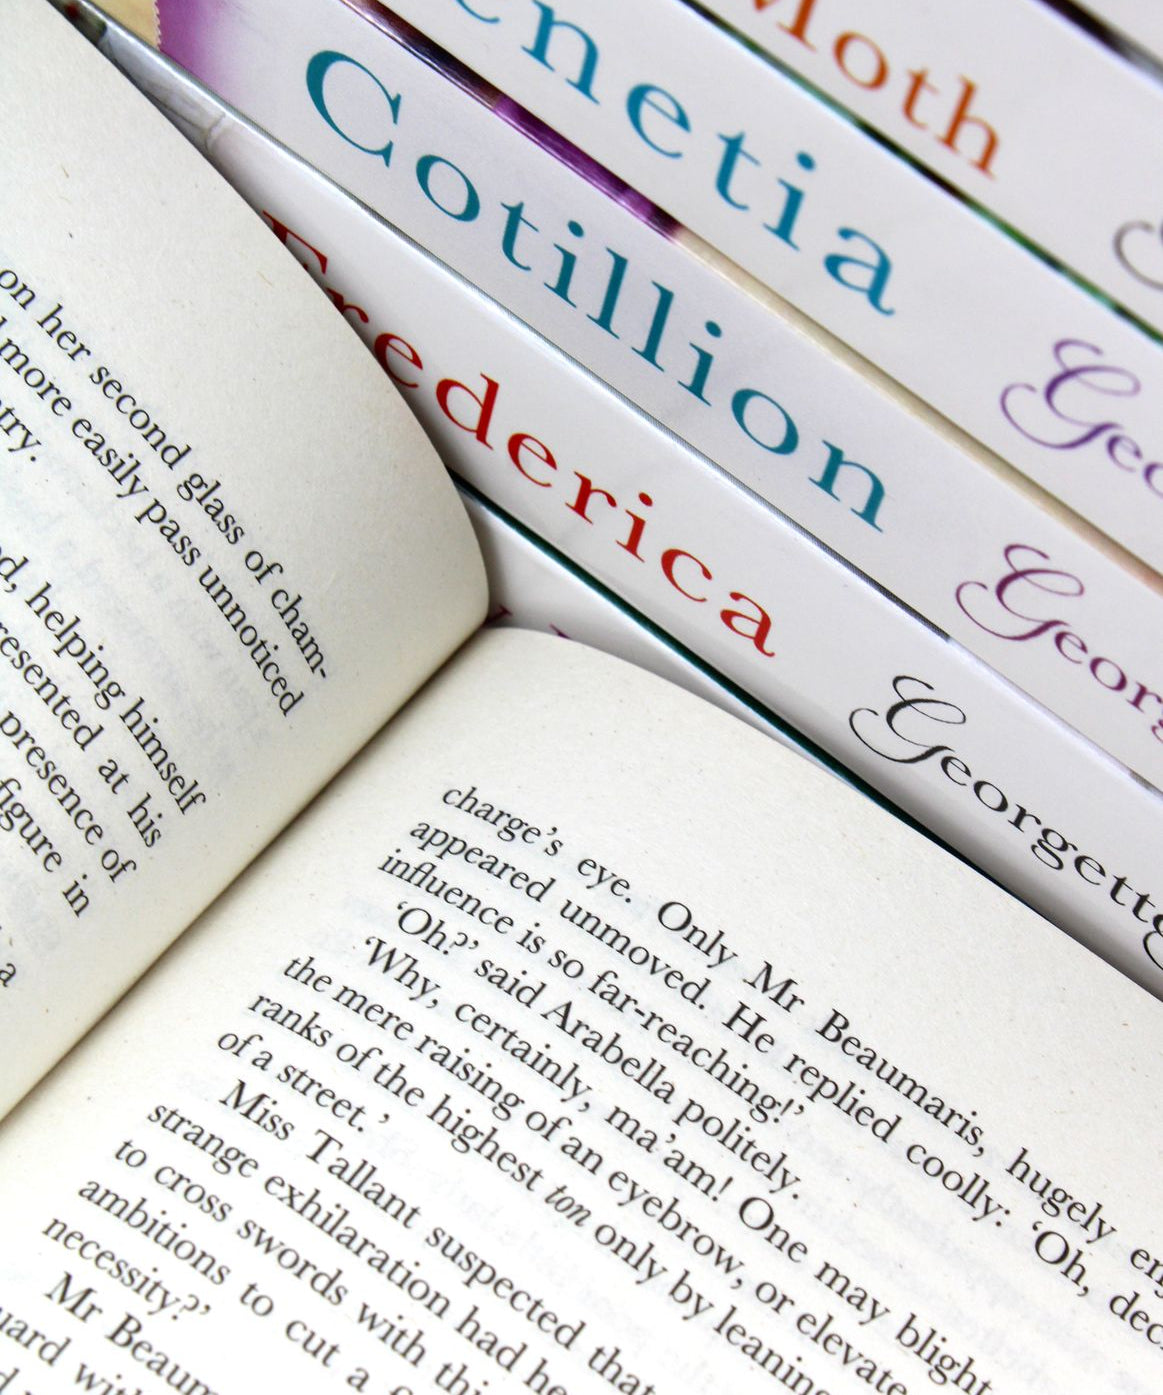 Moth
enetia
Geo
Cotillion
Georg
Frederica
Georgette
on her second glass of cham-
more easily pass unnoticed
try.
d, helping himself
resented at his
presence of
figure in
a
charge's eye. Only Mr Beaumaris, hugely en
appeared unmoved. He replied coolly: 'Oh, dec
influence is so far-reaching!'
'Oh?' said Arabella politely.
'Why, certainly, ma'am! One may blight
the mere raising of an eyebrow, or elevate
ranks of the highest ton only by leaning
of a street.'
Miss Tallant suspected that
strange exhilaration had he
to cross swords with thi
ambitions to cut a f
necessity?'
Mr Beaum
uard with